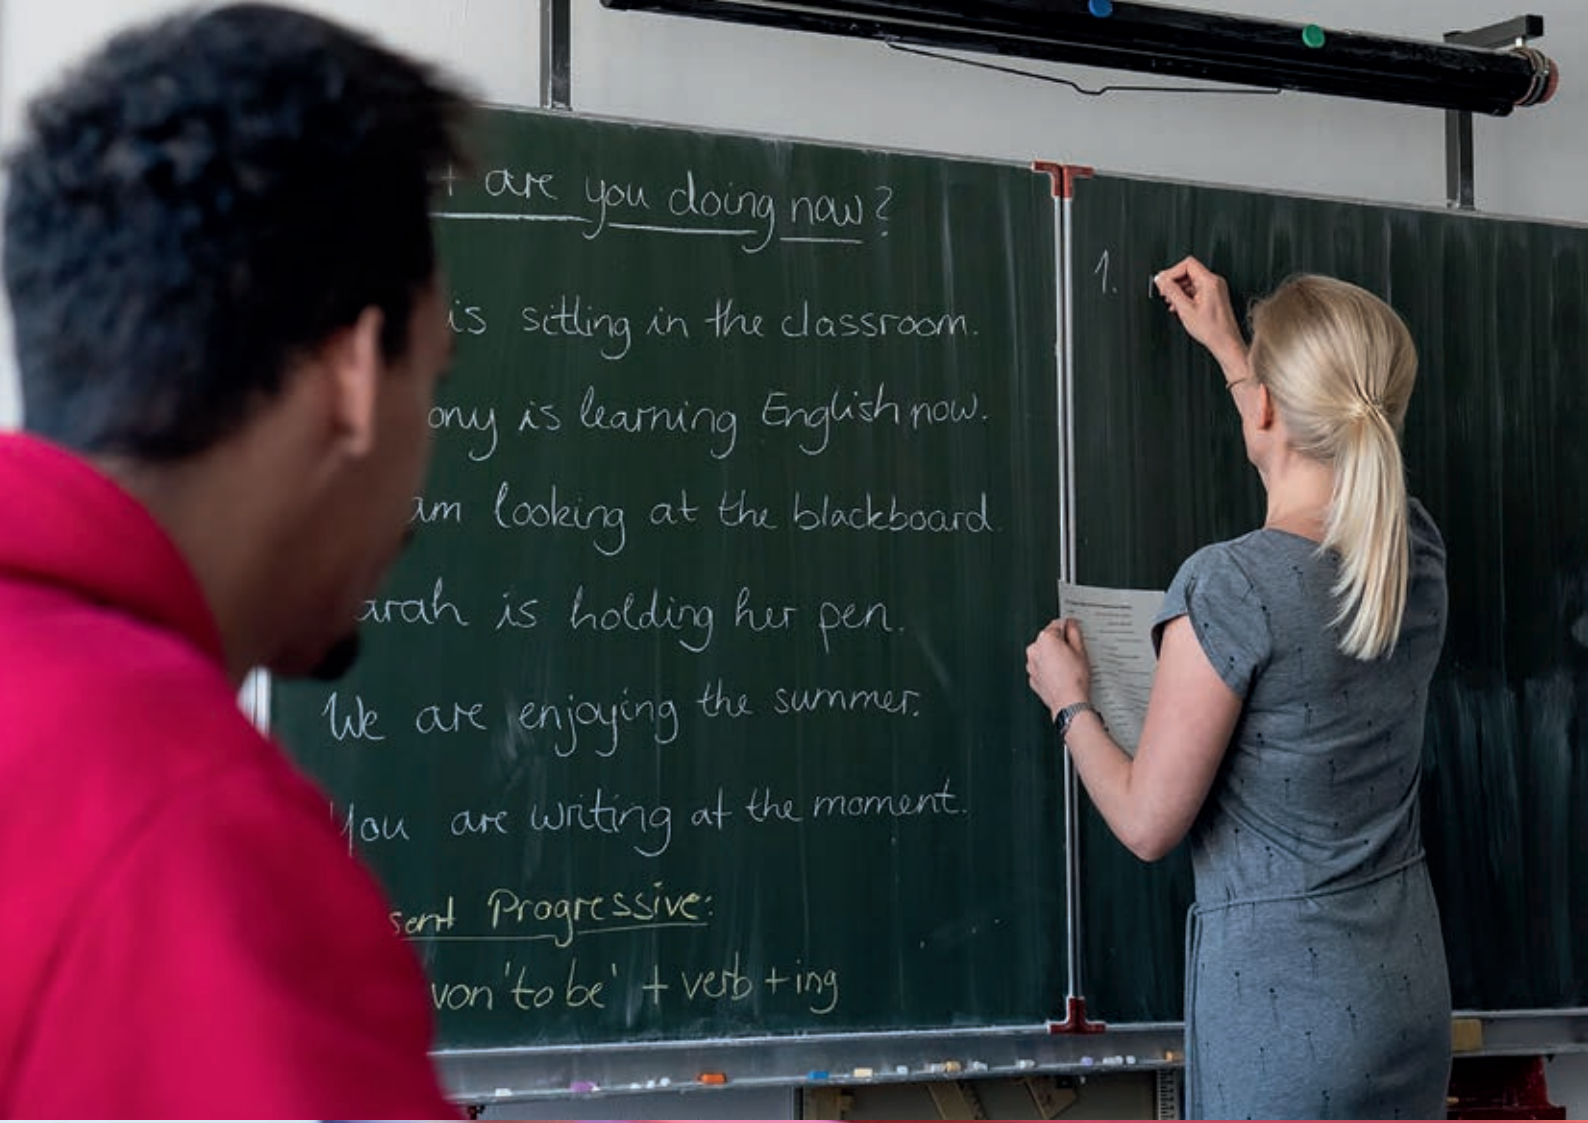 are you doing now?
is sitting in the classroom.
is learning English now.
am looking at the blackboard
is holding her pen.
We are enjoying the summer.
You are writing at the moment.
Progressive:
von 'to be' + verb + ing
1.